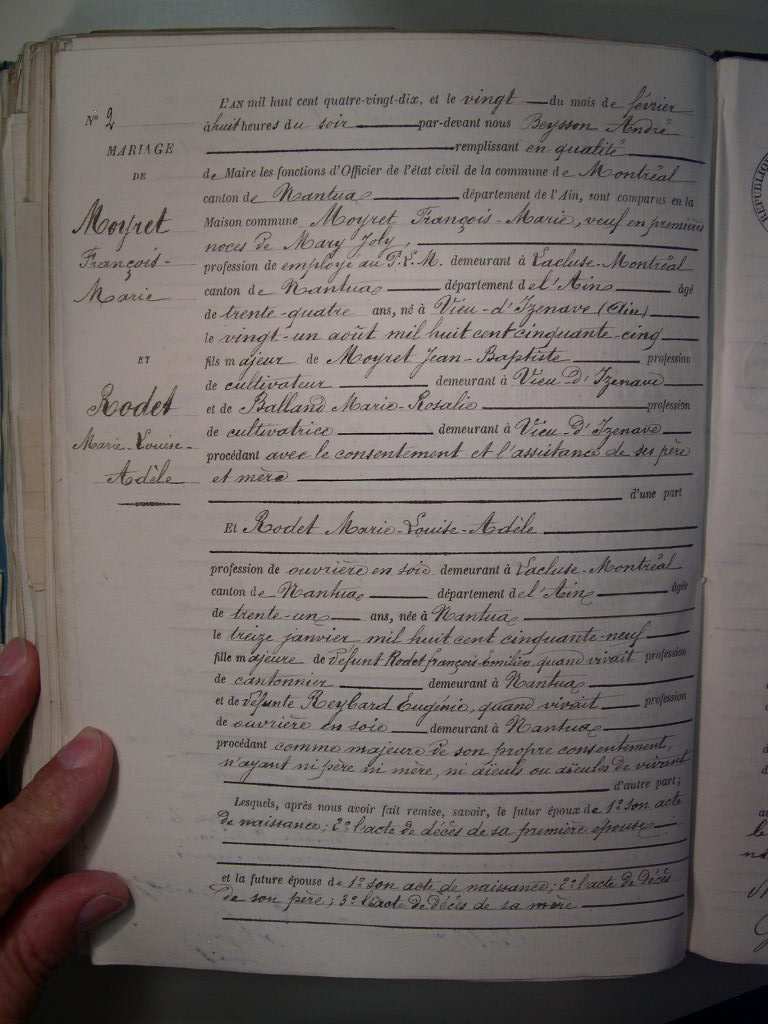 L'AN mil huit cent quatre-vingt-dix, et le vingt du mois de février
N° 2
à huit heures du soir par-devant nous Beysson André
MARIAGE
remplissant en qualité
DE
de Maire les fonctions d'Officier de l'état civil de la commune de Montréal
canton de Nantua département de l'Ain, sont comparus en la
Moyret
Maison commune Moyret François-Marie, veuf en premières
noces de Mary Joly,
François-
profession de employé au P.L.M. demeurant à Lacluse-Montréal
Marie
canton de Nantua département de l'Ain âgé
de trente-quatre ans, né à Vieu-d'Izenave (Ain)
le vingt-un août mil huit cent cinquante-cinq
ET
fils majeur de Moyret Jean-Baptiste profession
de cultivateur demeurant à Vieu-d'Izenave
Rodet
et de Balland Marie-Rosalie profession
de cultivatrice demeurant à Vieu-d'Izenave
Marie-Louise-
procédant avec le consentement et l'assistance de ses père
Adèle
et mère
d'une part
Et Rodet Marie-Louise-Adèle
profession de ouvrière en soie demeurant à Lacluse-Montréal
canton de Nantua département de l'Ain âgée
de trente-un ans, née à Nantua
le treize janvier mil huit cent cinquante-neuf
fille majeure de défunt Rodet françois Emilien, quand vivait profession
de cantonnier demeurant à Nantua
et de défunte Reybard Eugénie, quand vivait profession
de ouvrière en soie demeurant à Nantua
procédant comme majeure de son propre consentement,
n'ayant ni père ni mère, ni aïeuls ou aïeules de vivant
d'autre part;
Lesquels, après nous avoir fait remise, savoir, le futur époux de 1° son acte
de naissance; 2° l'acte de décès de sa première épouse
et la future épouse de 1° son acte de naissance; 2° l'acte de décès
de son père; 3° l'acte de décès de sa mère